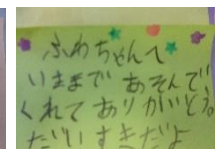 ふわちゃんへ
いままであそんで
くれてありがとう。
だいすきだよ